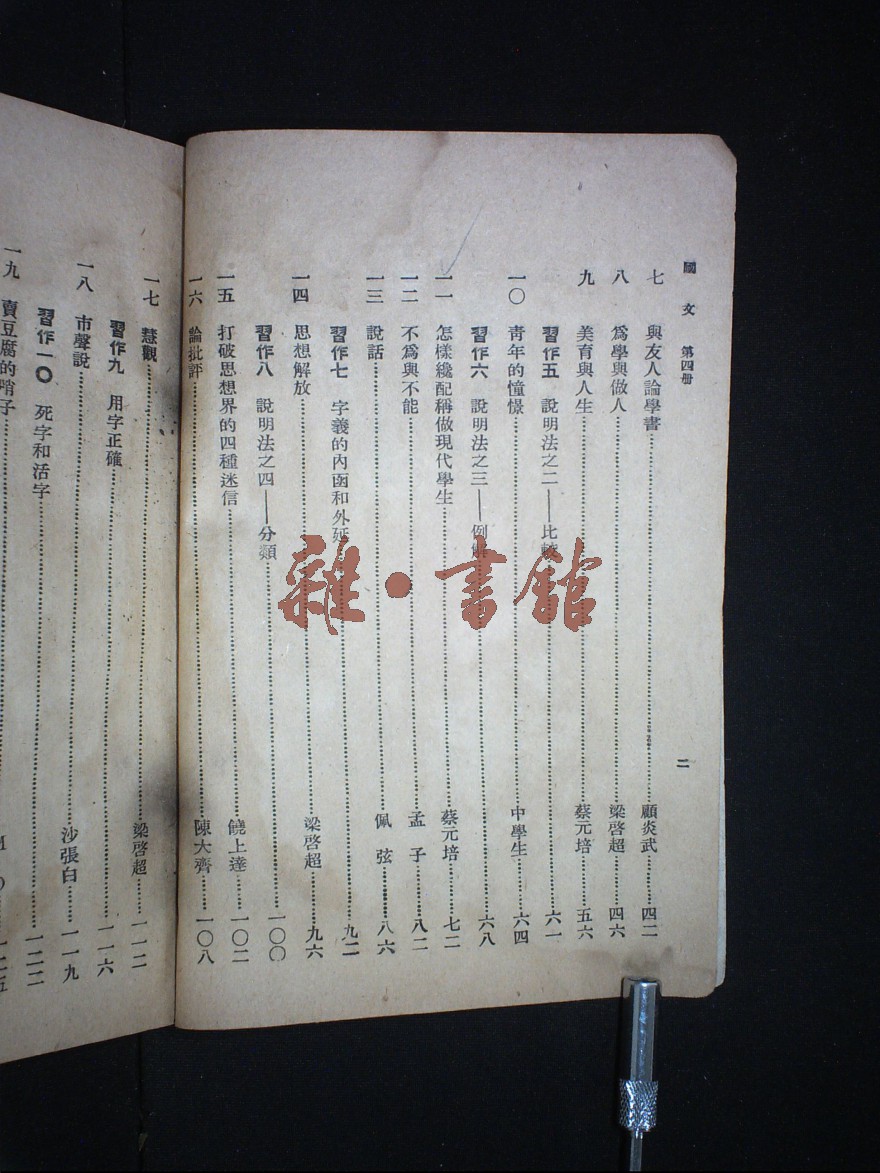 國文 第四册
二
七 與友人論學書 顧炎武 四二
八 爲學與做人 梁啓超 四六
九 美育與人生 蔡元培 五六
習作五 說明法之二——比較 六一
一〇 靑年的憧憬 中學生 六四
習作六 說明法之三——例解 六八
一一 怎樣纔配稱做現代學生 蔡元培 七二
一二 不爲與不能 孟子 八二
一三 說話 佩弦 八六
習作七 字義的內函和外延 九二
一四 思想解放 梁啓超 九六
習作八 說明法之四——分類 一〇〇
一五 打破思想界的四種迷信 饒上達 一〇二
一六 論批評 陳大齊 一〇八
一七 慧觀 梁啓超 一一二
習作九 用字正確 一一六
一八 市聲說 沙張白 一一九
習作一〇 死字和活字 一二二
一九 賣豆腐的哨子
雜·書館